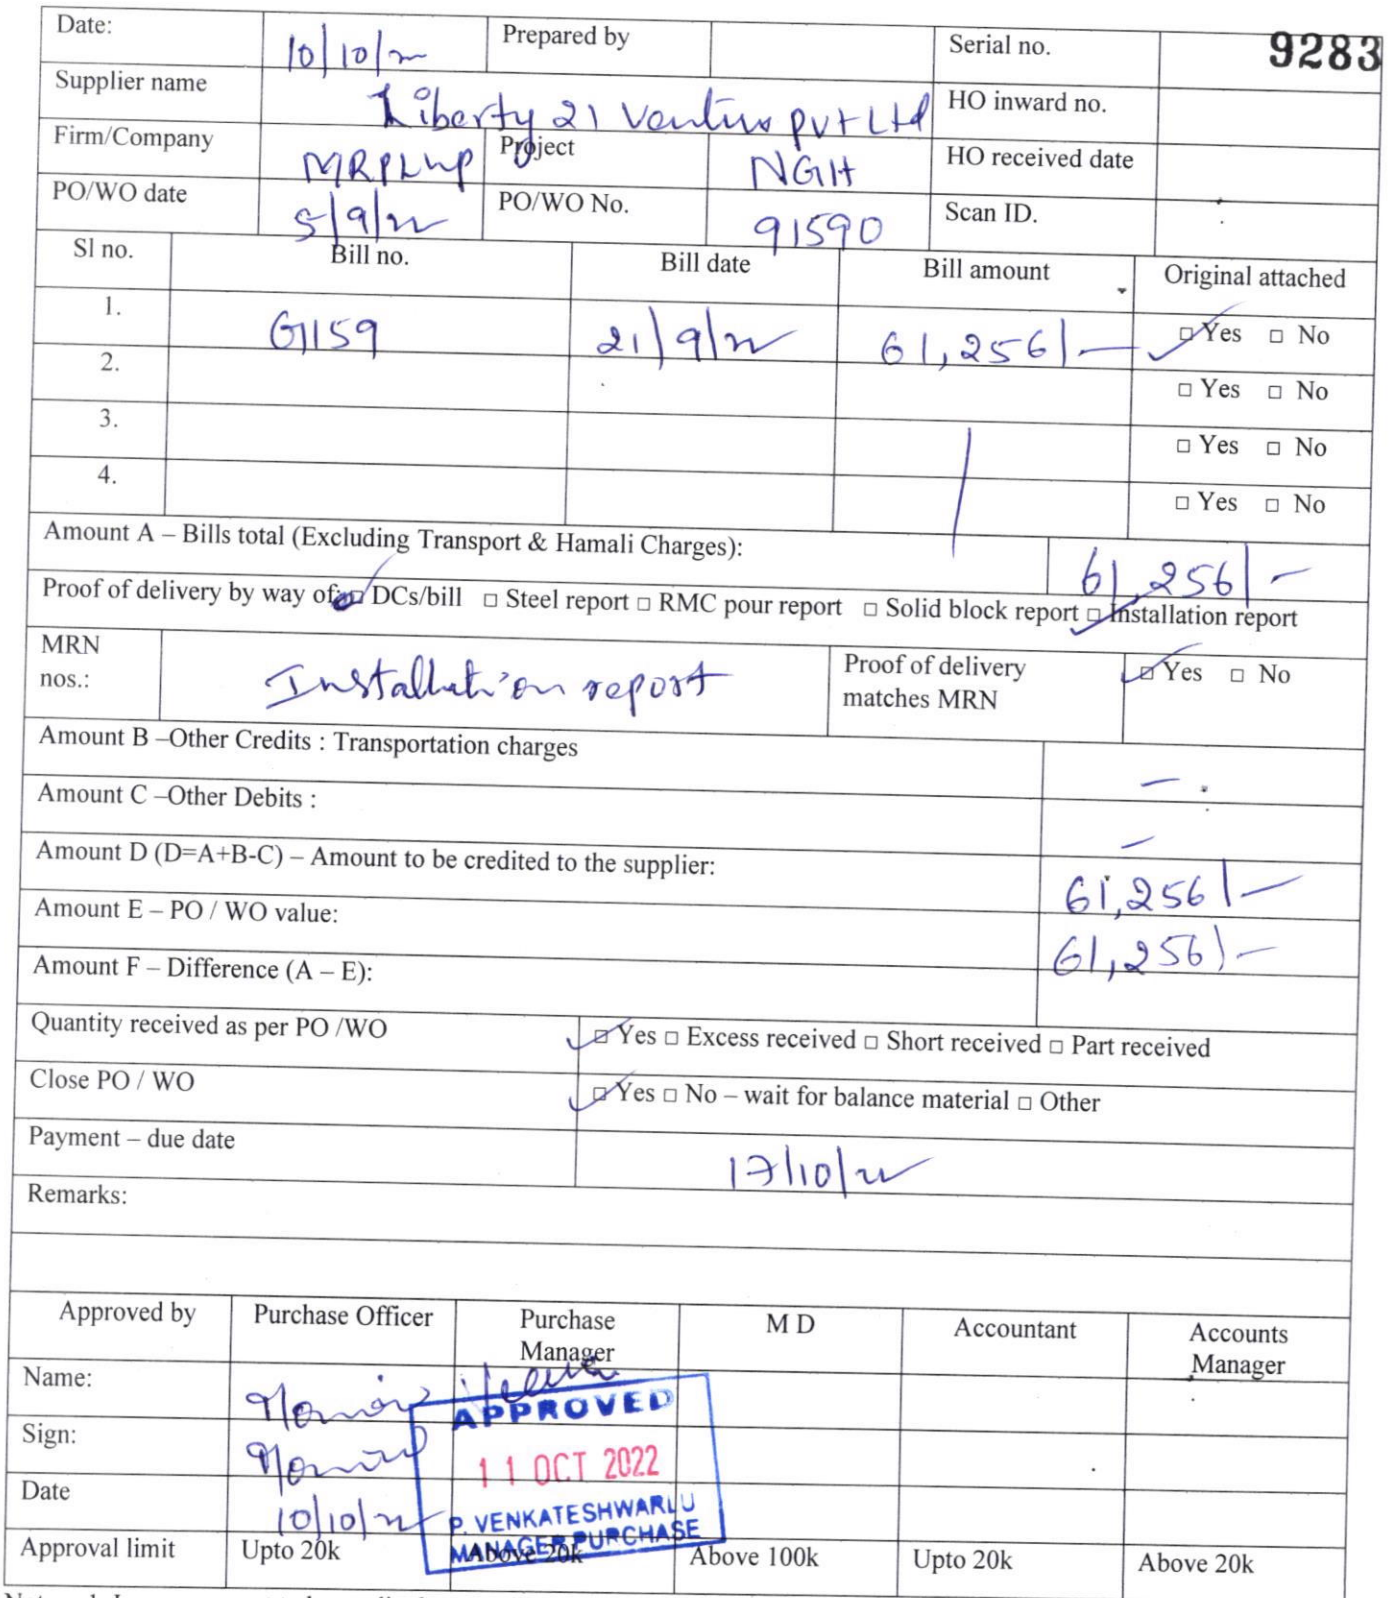 Date: 10/10/22 Prepared by Serial no. 9283
Supplier name Liberty 21 Ventures Pvt Ltd HO inward no.
Firm/Company MRPLLP Project NGH HO received date
PO/WO date 5/9/22 PO/WO No. 91590 Scan ID.
Sl no. Bill no. Bill date Bill amount Original attached
1. G1159 21/9/22 61,256/- □ Yes □ No
2. □ Yes □ No
3. □ Yes □ No
4. □ Yes □ No
Amount A – Bills total (Excluding Transport & Hamali Charges): 61,256/-
Proof of delivery by way of: □ DCs/bill □ Steel report □ RMC pour report □ Solid block report □ Installation report
MRN nos.: Installation report Proof of delivery matches MRN □ Yes □ No
Amount B –Other Credits : Transportation charges –
Amount C –Other Debits : –
Amount D (D=A+B-C) – Amount to be credited to the supplier: 61,256/-
Amount E – PO / WO value: 61,256/-
Amount F – Difference (A – E):
Quantity received as per PO /WO □ Yes □ Excess received □ Short received □ Part received
Close PO / WO □ Yes □ No – wait for balance material □ Other
Payment – due date 17/10/22
Remarks:
Approved by Purchase Officer Purchase Manager M D Accountant Accounts Manager
Name:
APPROVED
Sign:
11 OCT 2022
Date 10/10/22
P. VENKATESHWARLU
MANAGER PURCHASE
Approval limit Upto 20k Above 20k Above 100k Upto 20k Above 20k